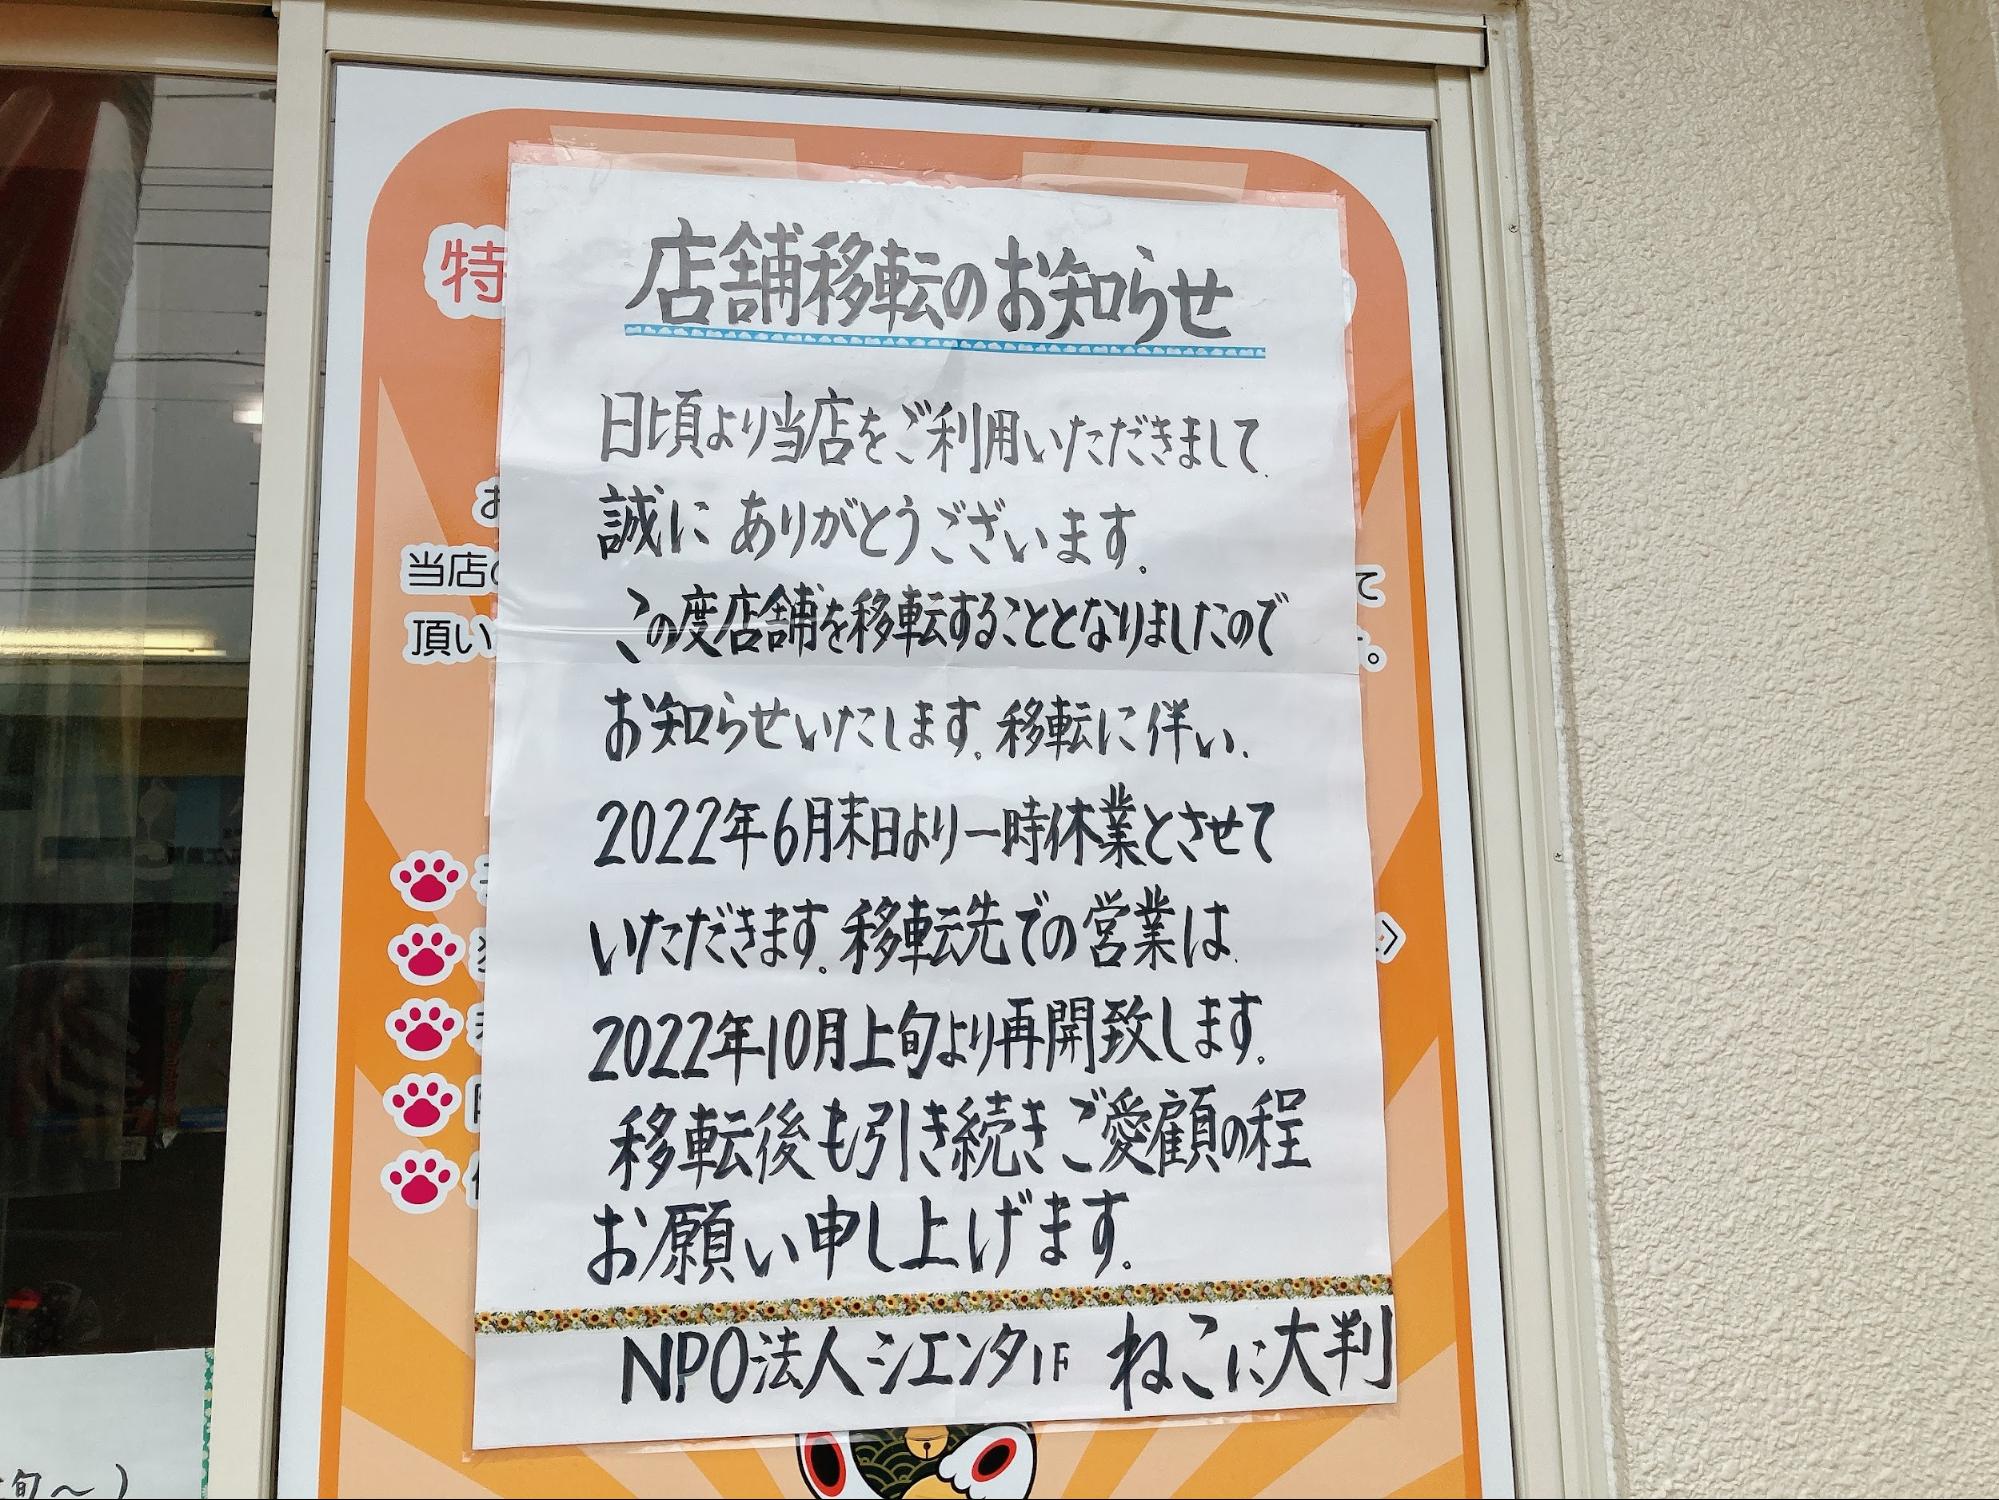 店舗移転のお知らせ
日頃より当店をご利用いただきまして
誠にありがとうございます。
この度店舗を移転することとなりましたので
お知らせいたします。移転に伴い、
2022年6月末日より一時休業とさせて
いただきます。移転先での営業は
2022年10月上旬より再開致します。
移転後も引き続きご愛顧の程
お願い申し上げます。
NPO法人シエンタ1F ねこに大判
特
お
当店の
て
頂い
。
旬～)